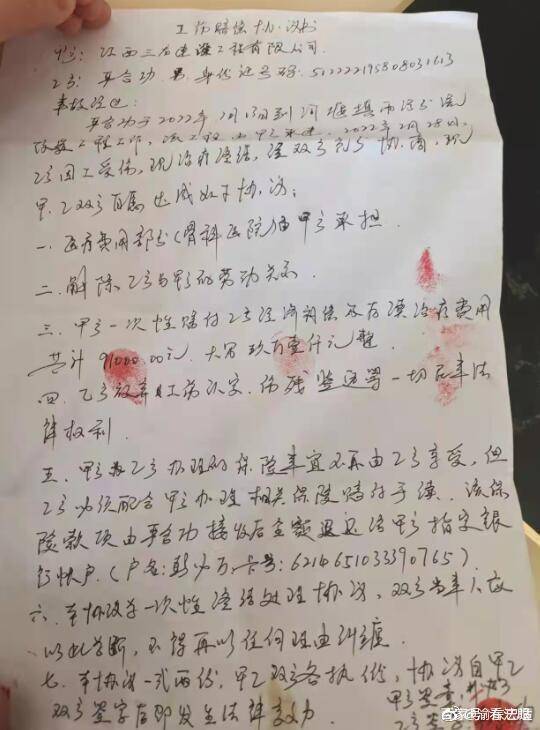 工伤赔偿协议书
甲方：江西三石建设工程有限公司.
乙方：平合功 男 身份证号码：512222195808031613
事故经过：
平合功于2022年2月13日到河堰镇
工程工作，该工程由甲方承建，2022年2月28日，
乙方因工受伤，现治疗终结，经双方充分协商，现
甲.乙双方自愿达成如下协议：
一.医疗费用部分（骨科医院）由甲方承担.
二.解除乙方与甲方的劳动关系.
三.甲方一次性赔付乙方经济补偿及后续治疗费用
共计91000.00元.大写玖万壹仟元整.
四.乙方放弃工伤认定.伤残鉴定等一切民事法
律权利.
五.甲方为乙方办理的保险事宜不再由乙方享受，但
乙方必须配合甲方办理相关保险赔付手续.该保
险款项由平合功接收后全额退还给甲方指定银
行帐户（户名： 卡号：6214651033390765）.
六.本协议为一次性终结处理协议，双方当事人应
以此为断，不得再以任何理由纠缠.
七.本协议一式两份，甲乙双方各执一份，协议自甲乙
双方签字后即发生法律效力.
甲方签章：
乙方签字：
百家号/渝看法脸